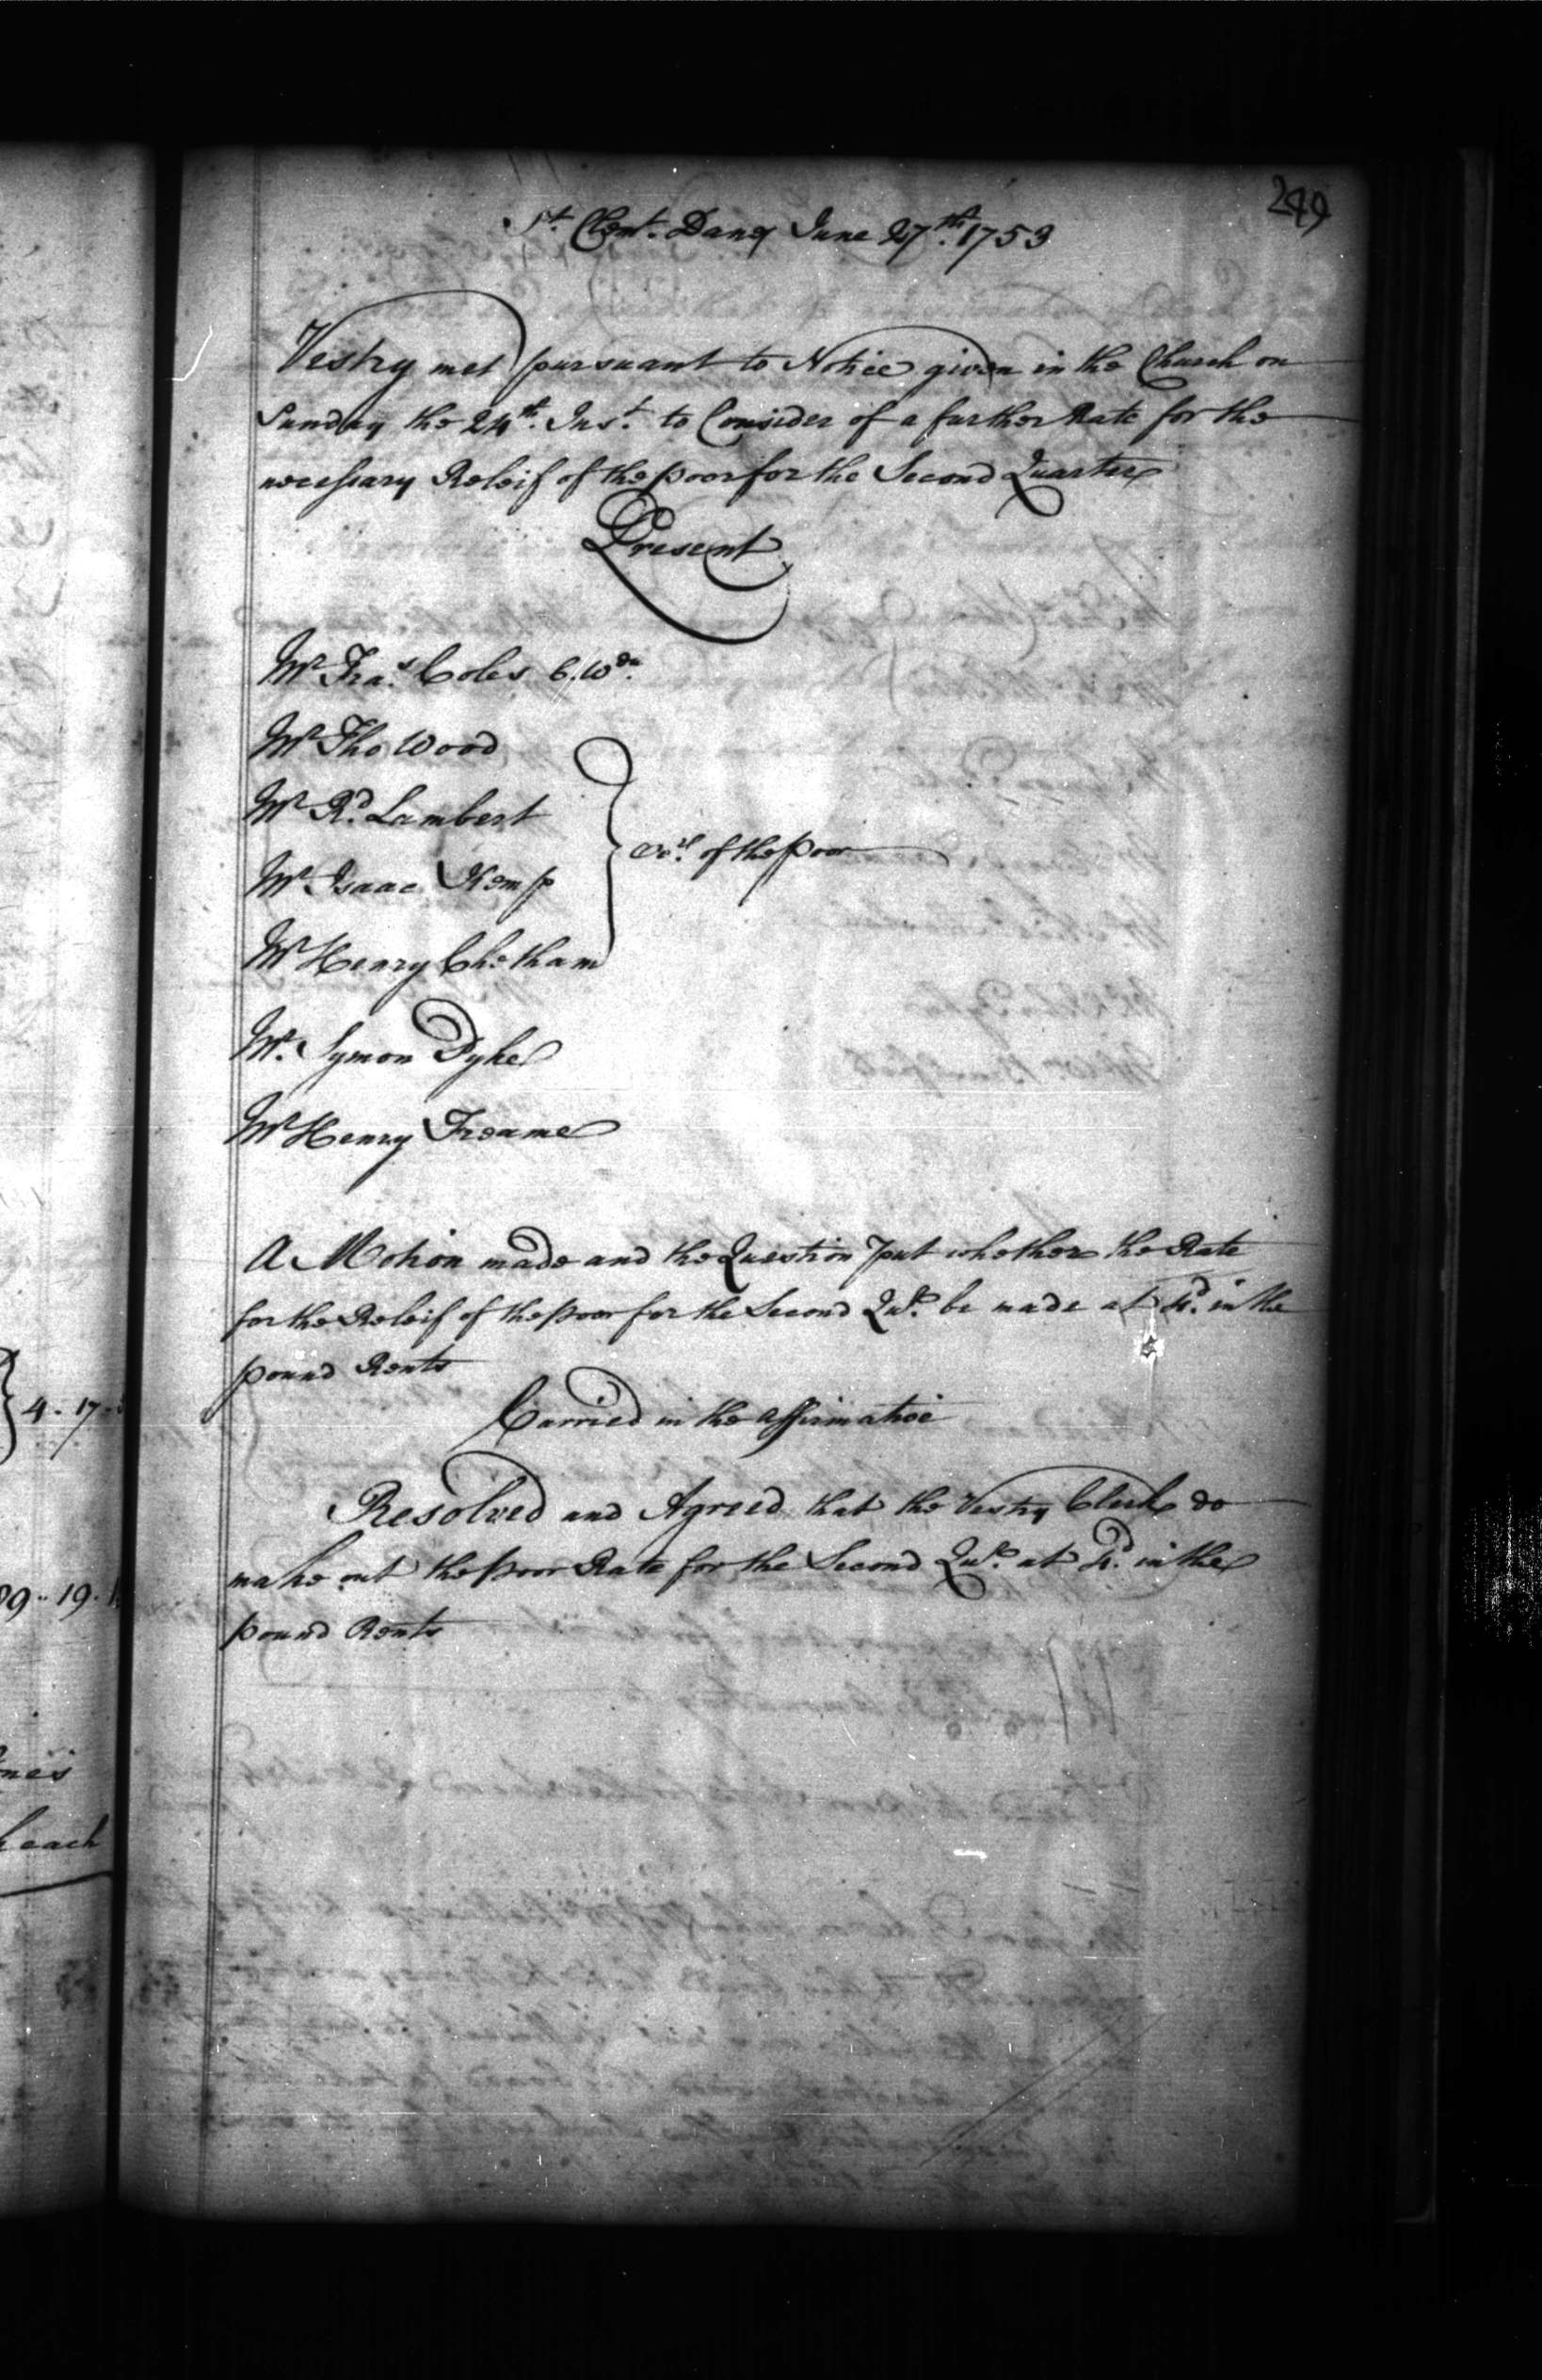 249
St. Clemt. Danes June 27th. 1753
Vestry met pursuant to Notice given in the Church on
Sunday the 24th. Inst. to Consider of a further Rate for the
necessary Releif of the poor for the Second Quarter
Present
Mr Fras. Coles C. Wdn.
Mr Tho Wood
Mr Rd. Lambert
Mr Isaac Kemp
Mr Henry Chetham
Ovrs. of the Poor
Mr. Symon Dyke
Mr Henry Freame
A Motion made and the Question put whether the Rate
for the Releif of the poor for the Second Qur. be made at 4d. in the
pound Rents
Carried in the affirmative
Resolved and Agreed that the Vestry Clerk do
make out the poor Rate for the Second Qur. at 4d. in the
pound Rents
4 - 17 -
9 - 19 -
each